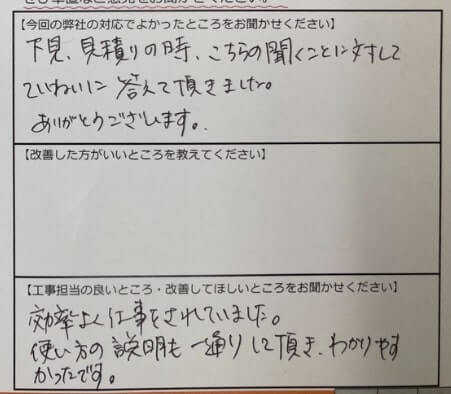 【今回の弊社の対応でよかったところをお聞かせください】
下見、見積りの時、こちらの聞くことに対して
ていねいに答えて頂きました。
ありがとうございます。
【改善した方がいいところを教えてください】
【工事担当の良いところ・改善してほしいところをお聞かせください】
効率よく仕事をされていました。
使い方の説明も一通りして頂き、わかりやす
かったです。